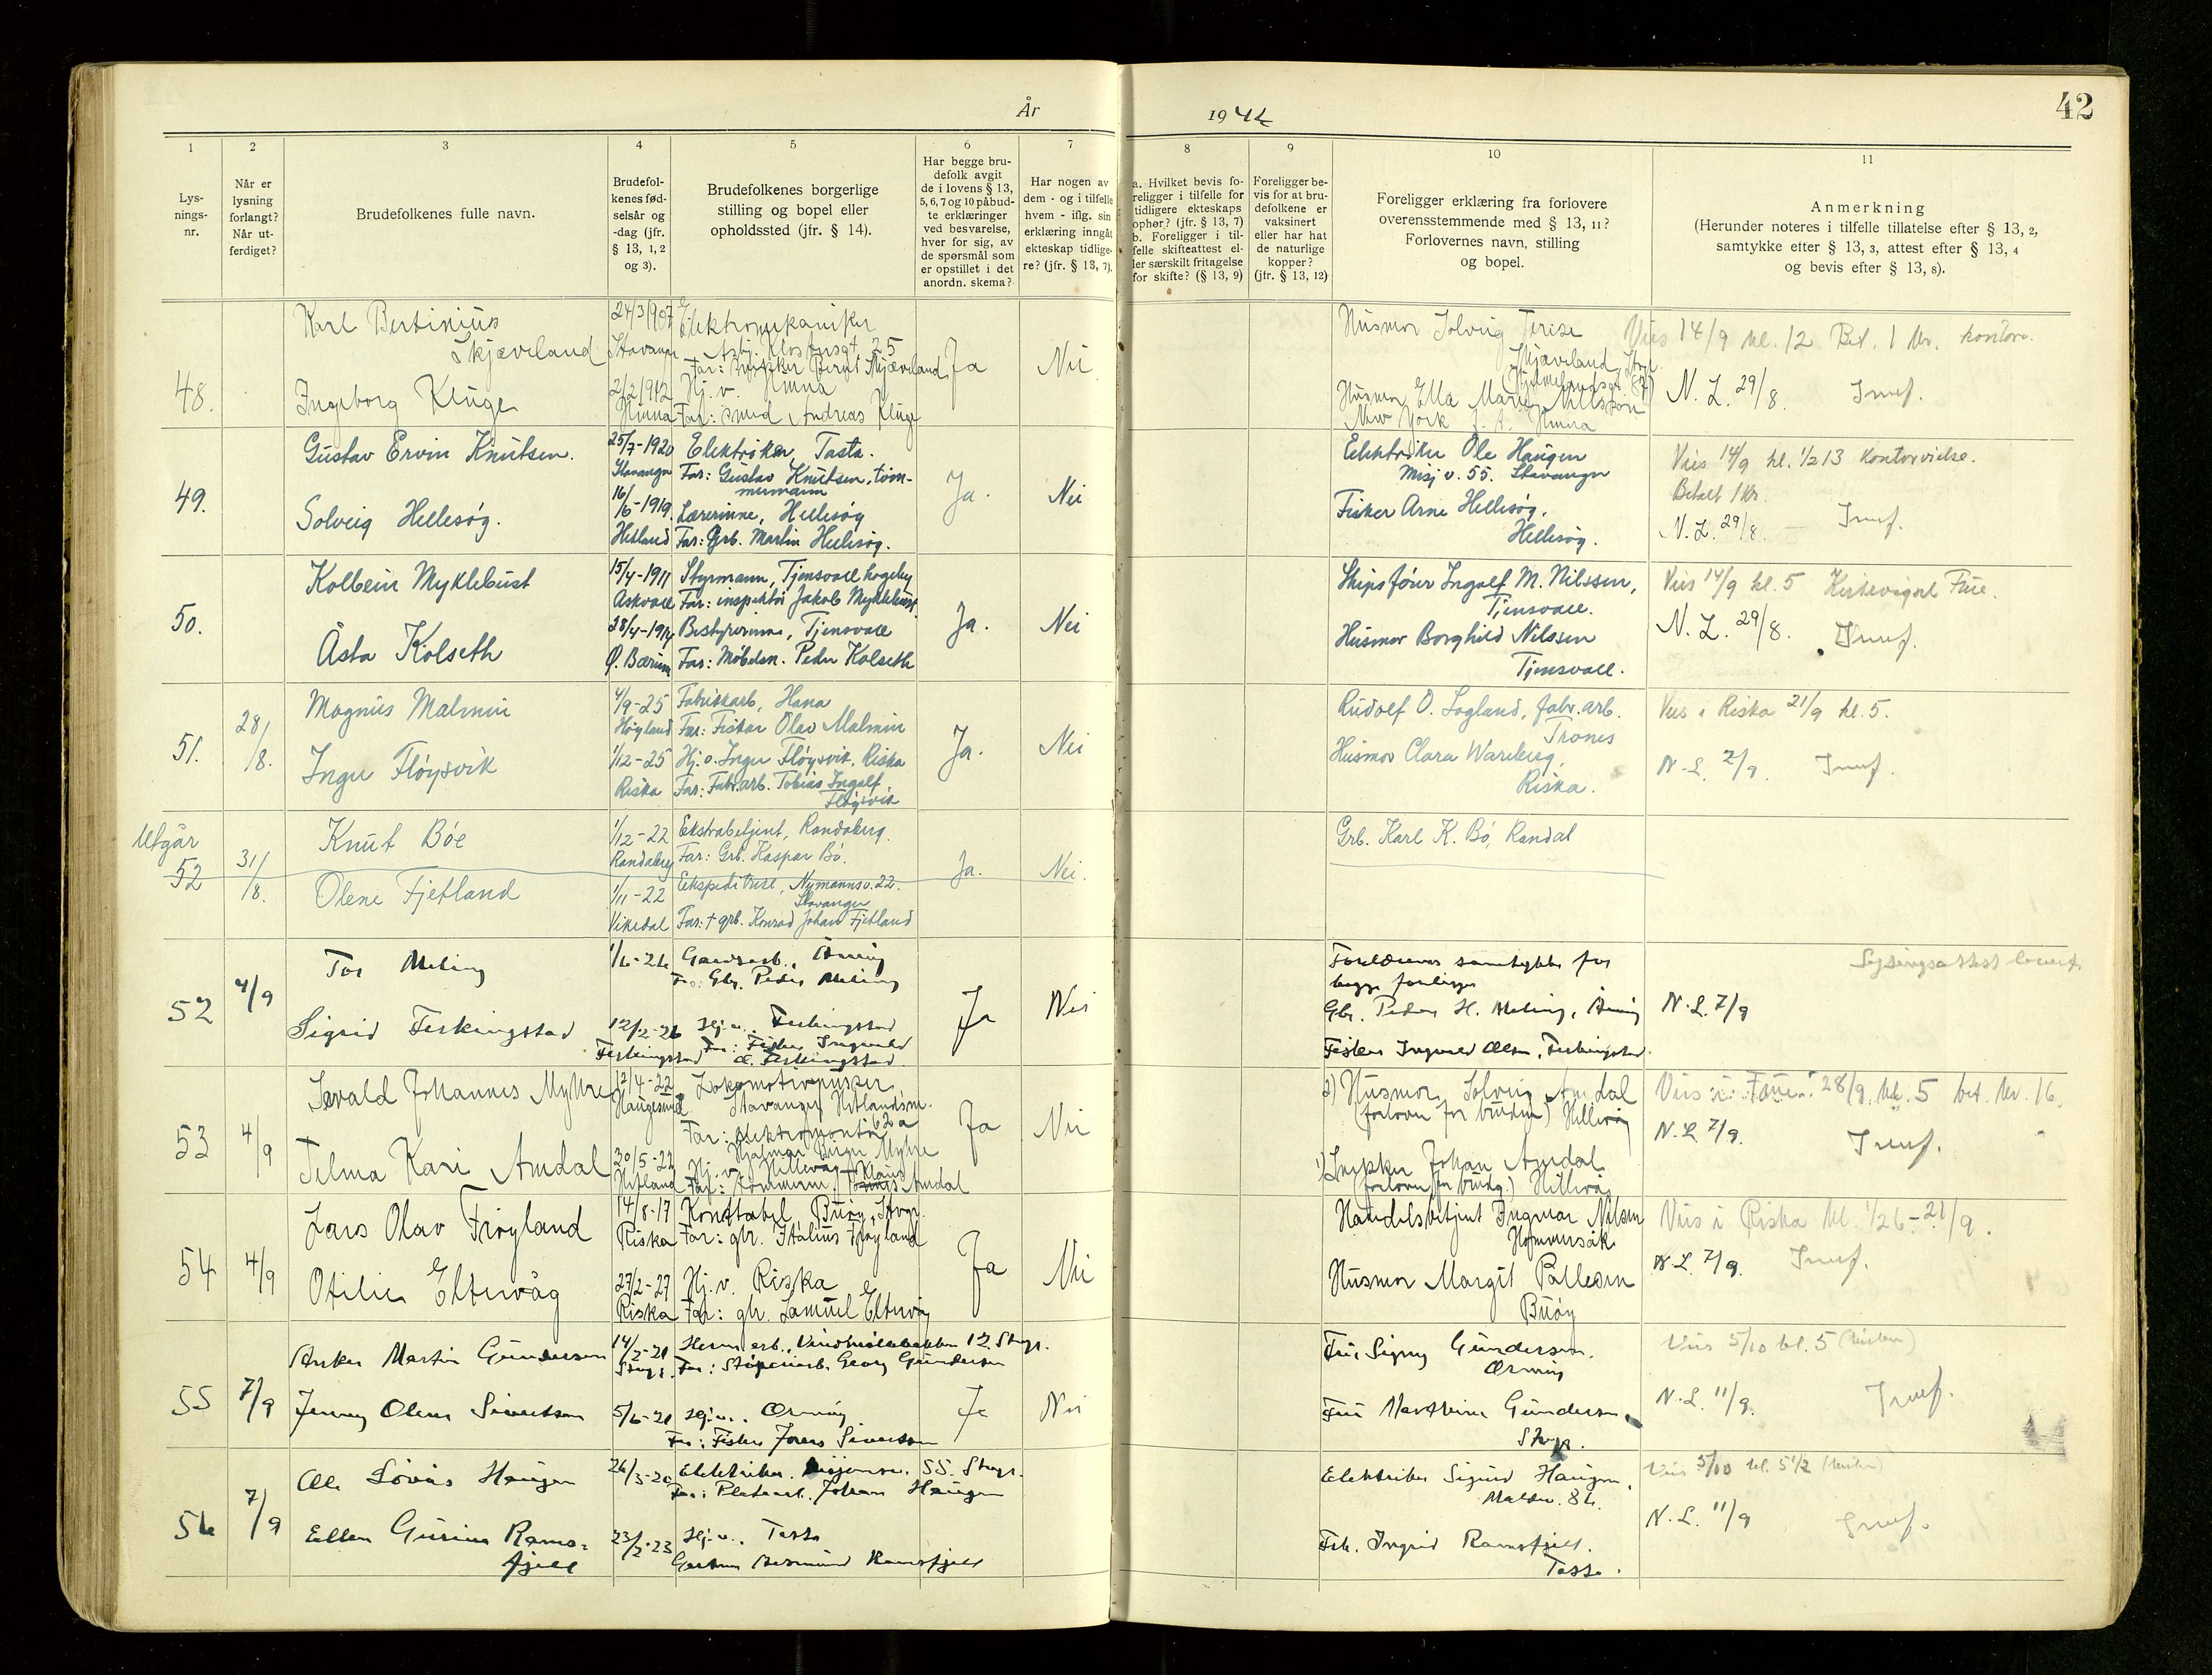 År 1946
42
1
2
3
4
5
6
7
8
9
10
11
Lys-
nings-
nr.
Når er
lysning
forlangt?
Når ut-
ferdiget?
Brudefolkenes fulle navn.
Brudefol-
kenes fød-
selsår og
-dag (jfr.
§ 13, 1, 2
og 3).
Brudefolkenes borgerlige
stilling og bopel eller
opholdssted (jfr. § 14).
Har begge bru-
defolk avgit
de i lovens § 13,
5, 6, 7 og 10 påbud-
te erklæringer
ved besvarelse,
hver for sig, av
de spørsmål som
er opstillet i det
anordn. skema?
Har nogen av
dem - og i tilfelle
hvem - iflg. sin
erklæring inngåt
ekteskap tidlige-
re? (jfr. § 13, 7).
a. Hvilket bevis fo-
religger i tilfelle for
tidligere ekteskaps
ophør? (jfr. § 13, 7)
b. Foreligger i til-
felle skifteattest el-
ler særskilt fritagelse
for skifte? (§ 13, 9)
Foreligger be-
vis for at bru-
defolkene er
vaksinert
eller har hat
de naturlige
kopper?
(jfr. § 13, 12)
Foreligger erklæring fra forlovere
overensstemmende med § 13, 11?
Forlovernes navn, stilling
og bopel.
Anmerkning
(Herunder noteres i tilfelle tillatelse efter § 13, 2,
samtykke efter § 13, 3, attest efter § 13, 4
og bevis efter § 13, 8).
48.
Karl Bertinius
Skjæveland
Ingeborg Kluge
24/3 1907
Stavanger
2/2 1912
Hinna
Elektromekaniker
Asbj. Klostergt 25
Far: Berget Skjæveland
Hj. v. Hinna
Far: smed Andreas Kluge
Ja
Nei
Husmor Solveig Terise
Skjæveland, Stvgr.
Husmor Ella Marie Nilsson
New York Hinna
Vies 14/9 kl. 12 Bet. 1 kr. kontor.
N. L. 29/8.
Innf.
49.
Gustav Ervin Knutsen.
Solveig Hellesøy.
25/7-1920
Stavanger
16/6-1919.
Hetland
Elektriker, Tasta.
Far: Gustav Knutsen, tøm-
mermann
Lærerinne, Hellesøy
Far: Grb. Martin Hellesøy.
Ja.
Nei
Elektriker Ole Haugen
Misj v. 55. Stavanger
Fisker Arne Hellesøy,
Hellesøy.
Vies 14/9 kl. 1/2 13 kontorvielse.
Betalt 1 kr.
N. L. 29/8.
Innf.
50.
Kolbein Myklebust
Åsta Kolseth
15/4-1911
Askvoll
28/4-1914
Ø. Bærum
Styrmann, Tjensvoll hageby
Far: inspektør Jakob Myklebust
Bestyrerinne, Tjensvoll
Far: Møbelsn. Peder Kolseth
Ja.
Nei
Skipsfører Ingolf M. Nilssen,
Tjensvoll.
Husmor Borghild Nilssen
Tjensvoll.
Vies 14/9 kl. 5 Kirkevigsel Frue.
N. L. 29/8.
Innf.
51.
28/8.
Magnus Malmin
Inger Fløysvik
4/9-25
Høyland
1/12-25
Riska
Fabrikkarb, Hana
Far: Fisker Olav Malmin
Hj. v. Inger Fløysvik, Riska
Far: Fabr.arb. Tobias Ingolf
Fløysvik
Ja.
Nei
Rudolf O. Sagland, fabr.arb.
Trones
Husmor Clara Wareberg,
Riska.
Vies i Riska 21/9 kl. 5.
N. L. 2/9.
Innf.
Utgår
52
31/8.
Knut Bøe
Olene Fjetland
1/12-22
Randaberg
1/11-22
Vikedal
Ekstrabetjent, Randaberg.
Far: Grb. Kaspar Bø.
Ekspeditrise, Nymannsv. 22.
Stavanger
Far: † grb. Konrad Johan Fjetland
Ja.
Nei.
Grb. Karl K. Bø, Randab
52
4/9
Tor Meling
Sigrid Ferkingstad
1/6-26
12/2-26
Ferkingstad
Gardsarb., Åmøy
Far: Gbr. Peder Meling
Hj. v., Ferkingstad
Far: Fisker Ingvald
O. Ferkingstad
Ja
Nei
Foreldrenes samtykke for
begge foreligger
Gbr. Peder H. Meling, Åmøy
Fisker Ingvald Olsen, Ferkingstad.
Lysingsattest levert.
N. L. 7/9
53
4/9
Sevald Johannes Myhre
Telma Kari Amdal
12/4-22
Haugesund
30/5-22
Hetland
Lokomotivpusser,
Stavanger Hetlandsm.
62 a
Far: elektromontør
Hjalmar Myhre
Hj. v. Hillevåg
Far: Amdal
Ja
Nei
2) Husmor Solveig Amdal
(forlover for bruden) Hillevåg
1) Johan Amdal
(forlover for brudg.) Hillevåg
Vies i Frue 28/9. kl. 5 bet. kr. 16.
N. L 7/9.
Innf.
54
4/9
Lars Olav Frøyland
Otilie Eltervåg
14/8-17
Riska
27/2-27
Riska
Konstabel Buøy, Stvgr.
Far: gbr. Italius Frøyland
Hj. v. Riska
Far: gbr. Samuel Eltervåg
Ja
Nei
Handelsbetjent Ingmar Nilsen
Hommersåk
Husmor Margit Pallesen
Buøy
Vies i Riska kl. 1/2 6 - 21/9.
N. L. 7/9.
Innf.
55
7/9
Anker Martin Gundersen
Jenny Olene Sivertsen
14/2-21
Stvgr.
5/6-21
Herm. arb., Vindmøllebakken 12 Stvgr.
Far: Støperiarb. Georg Gundersen
Hj. v., Ormøy
Far: Fisker Sivertsen
Ja
Nei
Fru Signy Gundersen,
Ormøy
Fru Gundersen,
Stvgr.
Vies 5/10 kl. 5 (kirken)
N. L. 11/9.
Innf.
56
7/9
Ole Løvås Haugen
Ellen Gurine Rams-
fjell
26/3-20
23/2-23
Elektriker, Misjonsv. 55. Stvgr.
Far: Platearb. Johan Haugen
Hj. v., Tasta
Ramsfjell
Elektriker Sigurd Haugen,
Frk. Ingrid Ramsfjell.
Tasta.
Vies 5/10 kl. 5 1/2 (kirken)
N. L. 11/9
Innf.